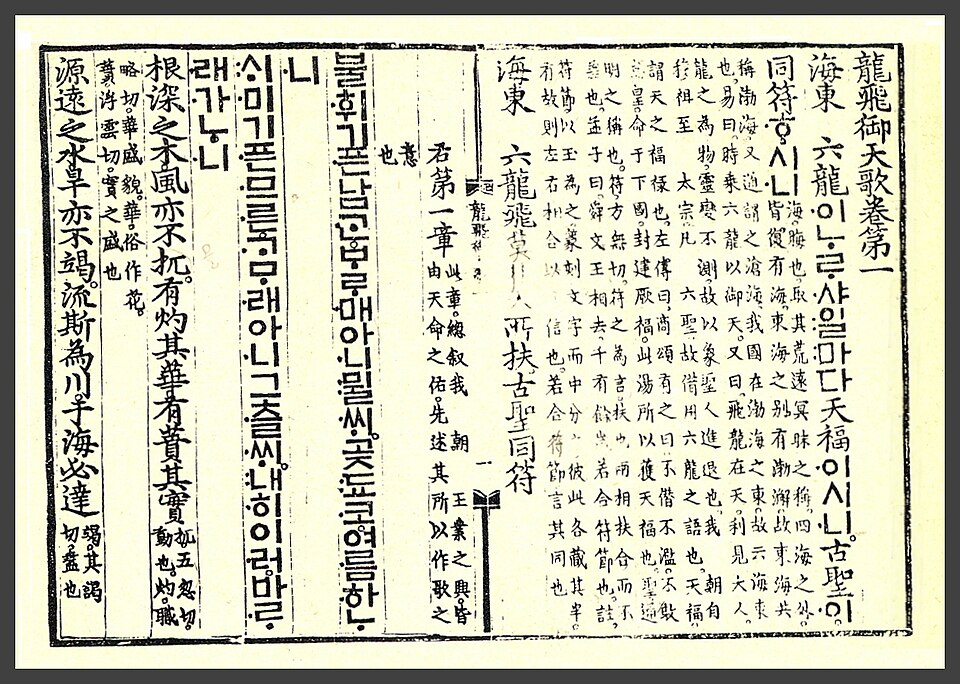 龍飛御天歌卷第一
海東 六龍이ᄂᆞᄅᆞ샤일마다天福이시니。古聖이
同符ᄒᆞ시니
海晦也。取其荒遠冥昧之稱。四海之外。
皆復有海。東海之別有渤澥。故東海共
稱渤海。又通謂之滄海。我國在渤海之東。故云海東
也。易曰。時乘六龍以御天。又曰。飛龍在天。利見大人。
龍之為物。靈變不測。故以象聖人進退也。我 朝自
穆祖至 太宗。凡 六聖。故借用六龍之語也。天福。
謂天之福祿也。左傳曰。商頌有之曰。不僭不濫。不敢
皇。命于下國。封建厥福。此湯所以獲天福也。聖。通
明之稱也。符。方無切。符之為言扶也。兩相扶合而不
差也。孟子曰。舜文王相去千有餘歲。若合符節也。註。
符節。以玉為之。篆刻文字而中分 彼此各藏其半。
有故則左右相合以 信也。若合符節。言其同也
海東 六龍飛莫 所扶。古聖同符
龍飛
一
右第一章
此章。總叙我 朝 王業之興。皆
由天命之佑。先述其所以作歌之
意
也
불휘기픈남ᄀᆞᆫᄇᆞᄅᆞ매아니뮐ᄊᆡ。곶됴코。여름하ᄂᆞ
니
ᄉᆡ미기픈므른ᄀᆞᄆᆞ래아니그츨ᄊᆡ。내히이러。바ᄅᆞ
래가ᄂᆞ니
根深之木風亦不扤。有灼其華。有蕡其實
扤五忽切。
動也。灼。職
略切。華盛貌。華。俗作花。
蕡。浮雲切。實之盛也
源遠之水旱亦不竭。流斯為川。于海必達
竭。其謁
切。盡也